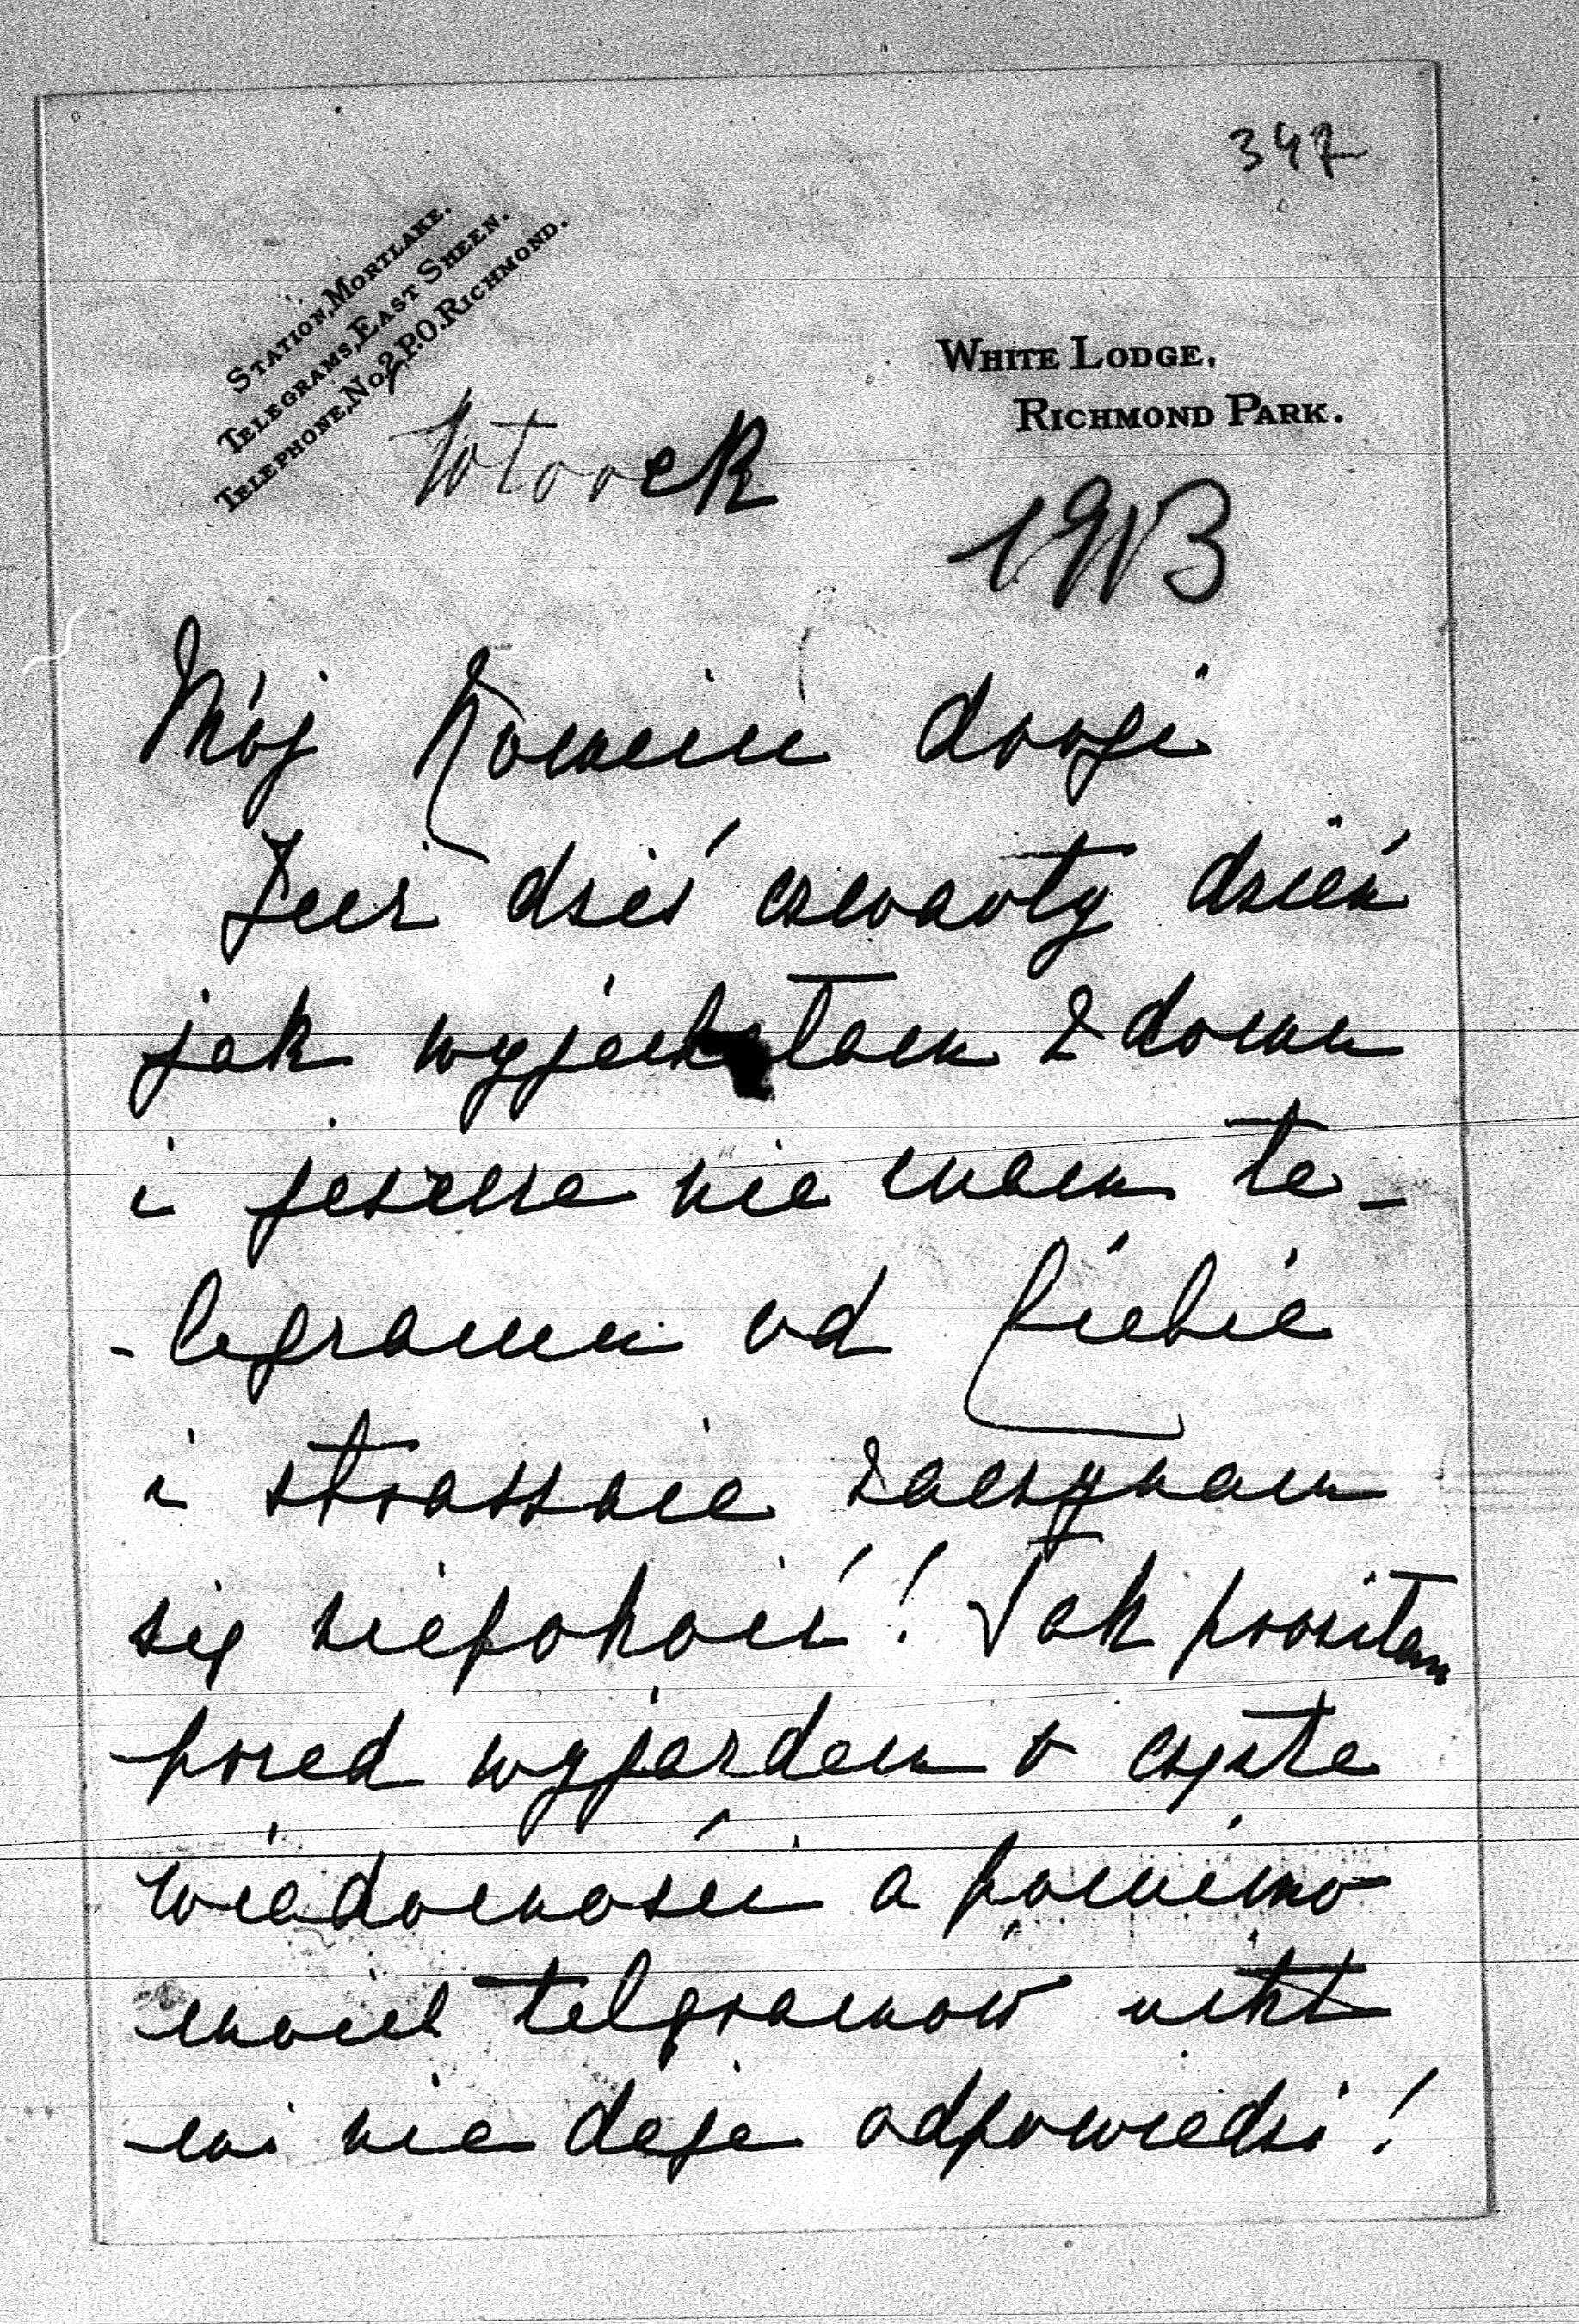 347
STATION, MORTLAKE.
TELEGRAMS, EAST SHEEN.
TELEPHONE, No 2, P.O. RICHMOND.
WHITE LODGE,
RICHMOND PARK.
Wtorek
1913
Mój drogi
Już dziś czwarty dzień
jak wyjechałam z domu
i jeszcze nie mam te-
-legramu od Ciebie
i strasznie zaczynam
się niepokoić! Tak prosiłam
przed wyjazdem o częste
wiadomości a pomimo
moich telgramów nikt
mi nie daje odpowiedzi!